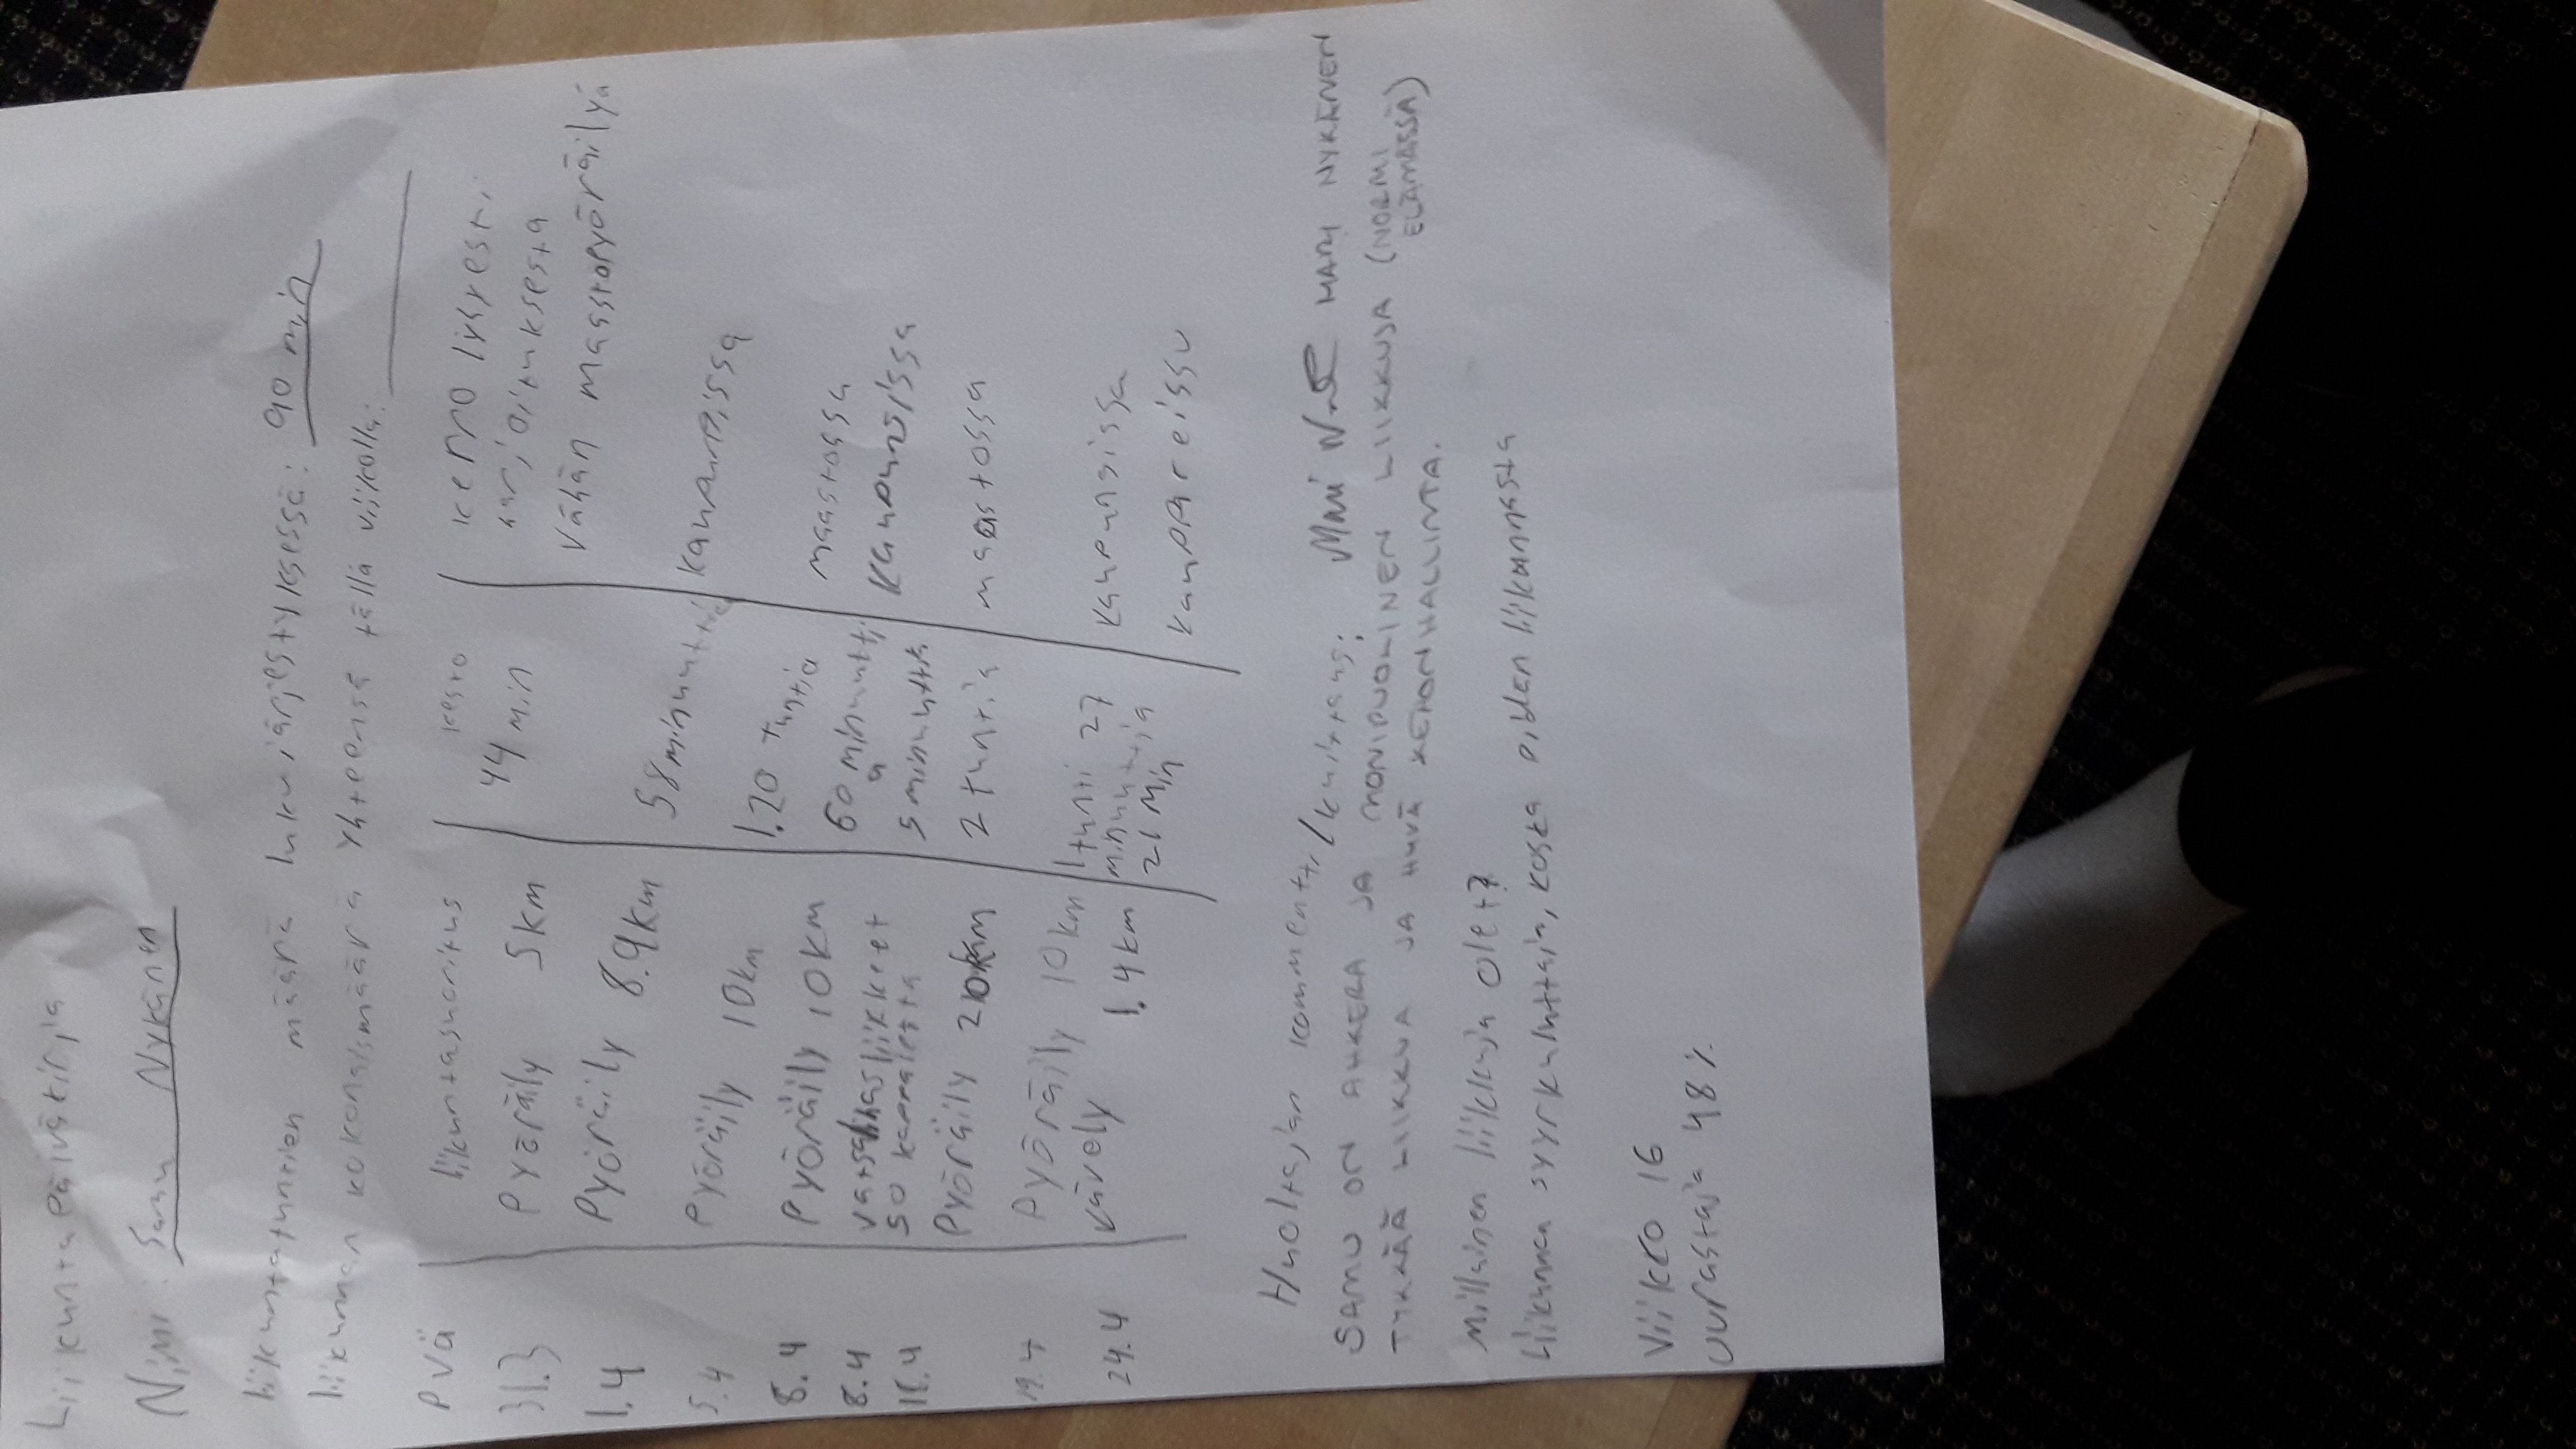 Liikuntapäiväkirja
Nimi: Samu Nykänen
liikuntatuntien määrä lukujärjestyksessä: 90 min
liikunnan kokonaismäärä yhteensä tällä viikolla:
pvä liikuntasuoritus kesto kerro lyhyesti
31.3 Pyöräily 5km 44 min harjoituksesta
vähän maastopyöräilyä
1.4 Pyöräily 8.9km 58 minuuttia kaupungissa
5.4 Pyöräily 10km 1.20 tuntia maastossa
8.4 Pyöräily 10km 60 minuuttia kaupungissa
8.4 vatsalihasliikkeet 5 minuuttia
50 kappaletta
16.4 Pyöräily 20km 2 tuntia maastossa
19.4 Pyöräily 10km 1 tunti 27 minuuttia kaupungissa
24.4 kävely 1.4km 21 min
Huoltajan kommentti/kuittaus: MARI NYKÄNEN
SAMU ON AHKERA JA MONIPUOLINEN LIIKKUJA (NORMI ELÄMÄSSÄ)
TYKKÄÄ LIIKKUA JA HYVÄ KEHONHALLINTA.
Millainen liikkuja olet?
Liikunnan suurkuluttaja, koska pidän liikunnasta
Viikko 16
uurastaja 48%